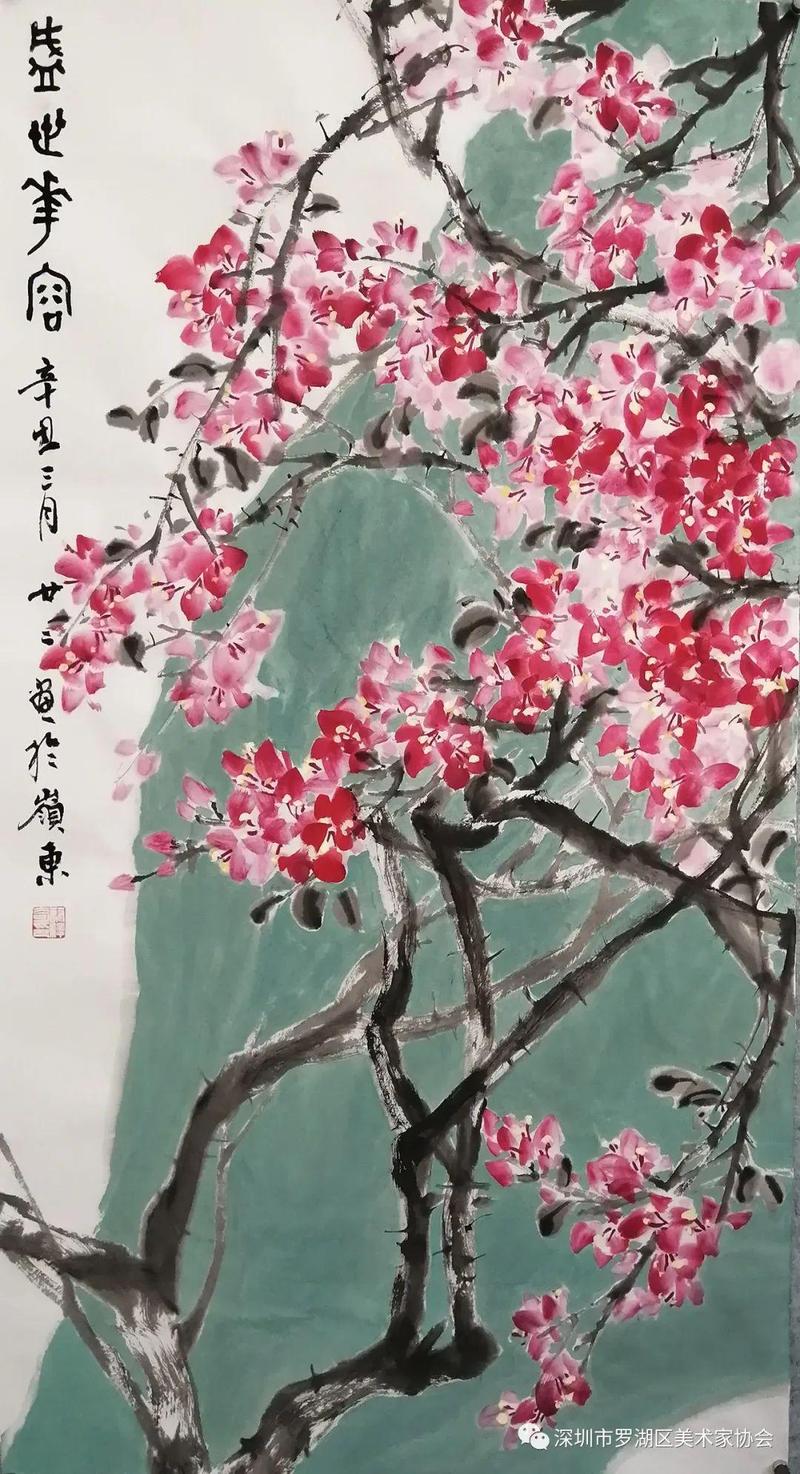 盛世華容
辛丑三月廿三畫於嶺東
深圳市罗湖区美术家协会